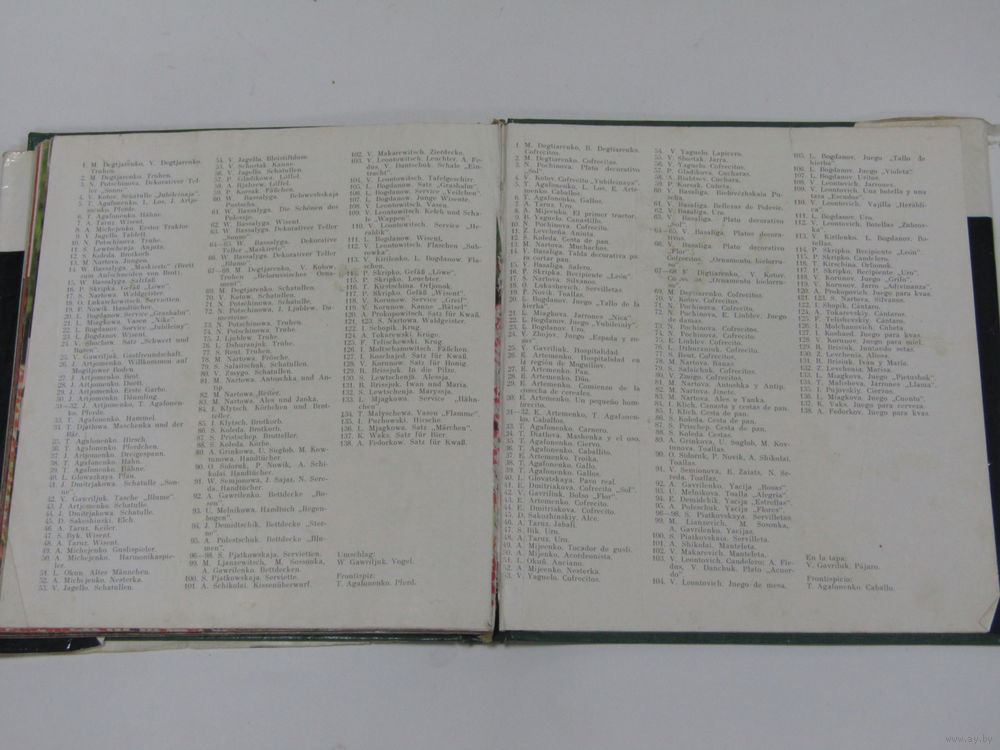 1. M. Degtjarenko, V. Degtjarenko.
Truhen.
2. M. Degtjarenko. Truhen.
3. N. Potschinowa. Dekorativer Tel-
ler „Sonne“.
4. V. Kotow. Schatulle „Jubileinaja“.
5. T. Agafonenko, L. Los, J. Artjo-
menko. Pferde.
6. T. Agafonenko. Hähne.
7. A. Taruz. Wisent.
8. A. Michejenko. Erster Traktor.
9. V. Jagello. Tablett.
10. N. Potschinowa. Truhe.
11. S. Lewtschenja. Anjuta.
12. S. Koleda. Brotkorb.
13. M. Nartowa. Jungen.
15. W. Bassalyga. Salzfaß.
16. P. Skripko. Gefäß „Löwe“.
17. S. Nartowa. Waldgeister.
18. O. Lukaschewitsch. Servietten.
19. P. Nowik. Handtücher.
20. L. Bogdanow. Service „Grashalm“.
21. L. Mjagkowa. Vasen „Nika“.
22. L. Bogdanow. Service „Jubileiny“.
23. L. Bogdanow. Wisent.
25. V. Gawriljuk. Gastfreundschaft.
26. J. Artjomenko. Willkommen auf
Mogiljower Boden.
27. J. Artjomenko. Brot.
28. J. Artjomenko. Duett.
29. J. Artjomenko. Erste Garbe.
30. J. Artjomenko. Däumling.
31—32. J. Artjomenko, T. Agafonen-
ko. Pferde.
33. T. Agafonenko. Hammel.
34. T. Djatlowa. Maschenka und der
Bär.
35. T. Agafonenko. Hirsch.
36. T. Agafonenko. Pferdchen.
37. J. Artjomenko. Dreigespann.
38. T. Agafonenko. Hahn.
39. T. Agafonenko. Hähne.
40. L. Glowazkaja. Pfau.
41. J. Dmitrjakowa. Schatulle „Son-
ne“.
42. V. Gawriljuk. Tasche „Blume“.
43. J. Artjomenko. Schatulle.
44. J. Dmitrjakowa. Schatulle.
45. D. Sakoshinski. Elch.
46. A. Taruz. Keiler.
47. S. Byk. Wisent.
48. A. Taruz. Wisent.
49. A. Michejenko. Guslispieler.
50. A. Michejenko. Harmonikaspie-
ler.
51. L. Okun. Altes Männchen.
52. A. Michejenko. Nesterka.
53. V. Jagello. Schatullen.
54. V. Jagello. Bleistiftdose.
55. V. Schostak. Kanne.
56. V. Jagello. Schatullen.
57. P. Gladikowa. Löffel.
58. A. Rjabzew. Löffel.
59. P. Korsak. Fäßchen.
60. W. Bassalyga. Belowesshskaja
Puschtscha.
61. W. Bassalyga. Die Schönen des
Polessje.
62. W. Bassalyga. Wisent.
63. W. Bassalyga. Dekorativer Teller
„Sonne“.
64—65. W. Bassalyga. Dekorative
Teller „Maskieto“.
66. W. Bassalyga. Dekorativer Teller
„Blume“.
67—68. M. Degtjarenko, V. Kotow.
Truhen „Belorussisches Orna-
ment“.
69. M. Degtjarenko. Schatullen.
70. V. Kotow. Schatullen.
71. N. Potschinowa. Schatulle.
72. N. Potschinowa, J. Ljublew. Da-
menzimmer
73. N. Potschinowa. Truhen.
74. N. Potschinowa. Truhe.
75. J. Ljublew. Truhe.
76. L. Dshuranjuk. Truhe.
77. S. Rout. Truhen.
78. M. Nartowa. Frösche.
79. S. Salaitschuk. Schatullen.
80. V. Zuogo. Schatullen.
81. M. Nartowa. Antoschka und An-
tip.
82. M. Nartowa. Reiter.
83. M. Nartowa. Ales und Janka.
84. J. Klytsch. Körbchen und Brot-
teller.
85. J. Klytsch. Brotkorb.
86. S. Koleda. Brotkorb.
87. S. Pristschep. Brotteller.
88. S. Koleda. Körbe.
89. A. Grinkowa, U. Suglob, M. Kow-
tunowa. Handtücher.
90. O. Sidoruk, P. Nowik, A. Schi-
kolai. Handtücher.
91. W. Semjonowa, J. Sajaz, N. Sere-
da. Handtücher.
92. A. Gawrilenko. Bettdecke „Ro-
sen“.
93. U. Melnikowa. Handtuch „Regen-
bogen“.
94. J. Demidtschik. Bettdecke „Ster-
ne“.
95. A. Polestschuk. Bettdecke „Blu-
men“.
96—98. S. Pjatkowskaja. Servietten.
99. M. Ljanzewitsch, M. Sossonka,
A. Gawrilenko. Bettdecken.
100. S. Pjatkowskaja. Serviette.
101. A. Schikolai. Kissenüberwurf.
102. V. Makarewitsch. Zierdecke.
103. V. Leontowitsch. Leuchter. A. Fe-
dus, V. Dantschuk. Schale „Ein-
tracht“.
104. V. Leontowitsch. Tafelgeschirr.
105. L. Bogdanow. Satz „Grashalm“.
106. L. Bogdanow. Service „Veilchen“.
107. L. Bogdanow. Junge Wisente.
108. V. Leontowitsch. Vasen.
109. V. Leontowitsch. Kelch und Scha-
le „Wappen“.
110. V. Leontowitsch. Service „He-
raldik“.
111. L. Bogdanow. Wisent.
112. V. Leontowitsch. Flaschen „Sub-
rowka“.
113. V. Kirilenko, L. Bogdanow. Fla-
schen.
114. P. Skripko. Gefäß „Löwe“.
115. P. Skripko. Leuchter.
116. T. Kirstschina. Orfijonok.
117. P. Skripko. Gefäß „Wisent“.
118. V. Korunow. Service „Greif“.
119. V. Korunow. Kanne „Rätsel“.
120. A. Prokopowitsch. Satz für Kwaß.
121, 123. S. Nartowa. Waldgeister.
122. I. Schopik. Krug.
124. A. Tokarewski. Krüge.
125. P. Telischewski. Krug.
126. I. Moltschanowitsch. Fäßchen.
127. I. Koschajod. Satz für Kwaß.
128. V. Korunow. Satz für Honig.
129. R. Brissjuk. In die Pilze.
130. S. Lewtschenja. Alessja.
131. R. Brissjuk. Iwan und Maria.
132. S. Lewtschenja. Maryssja.
133. L. Mjagkowa. Service „Hähn-
chen“
134. T. Malyschewa. Vasen „Flamme“.
135. I. Puchowski. Hirsche.
136. L. Mjagkowa. Satz „Märchen“.
137. K. Waks. Satz für Bier.
138. A. Fedorkow. Satz für Kwaß.
Umschlag:
W. Gawriljuk. Vogel.
Frontispiz:
T. Agafonenko. Pferd.
1. M. Degtiarenko, B. Degtiarenko.
Cofrecitos.
2. M. Degtiarenko. Cofrecitos.
3. N. Pochinova. Plato decorativo
„Sol“.
4. V. Kotov. Cofrecito „Yubileinaya“.
5. T. Agafonenko, L. Los, E. Arte-
menko. Caballos.
6. T. Agafonenko. Gallos.
7. A. Taruz. Uro.
8. A. Mijeenko. El primer tractor.
9. V. Yaguelo. Canastilla.
10. N. Pochinova. Cofrecito.
11. Z. Levchenia. Aniuta.
12. S. Koleda. Cesta de pan.
13. M. Nartova. Muchachos.
15. V. Basaliga. Salero.
16. P. Skripko. Recipiente „León“.
17. S. Nartova. Silvanos.
18. O. Lukashevich. Servilletas.
19. P. Novik. Toallas.
20. L. Bogdanov. Juego „Tallo de la
hierba“.
21. L. Miagkova. Jarrones „Nica“.
22. L. Bogdanov. Juego „Yubileiniy“.
23. L. Bogdanov. Uro.
25. V. Gavriliuk. Hospitalidad
26. E. Artemenko. Hospitalidad en
la región de Moguiliov.
27. E. Artemenko. Pan.
28. E. Artemenko. Dúo.
29. E. Artemenko. Comienzo de la
cosecha de cereales.
30. E. Artemenko. Un pequeño hom-
brecito.
31—32. E. Artemenko, T. Agafonen-
ko. Caballos.
33. T. Agafonenko. Carnero.
34. T. Diatlova. Mashenka y el oso.
35. T. Agafonenko. Ciervo.
36. T. Agafonenko. Caballito.
37. E. Artemenko. Troika.
38. T. Agafonenko. Gallo.
39. T. Agafonenko. Gallos.
40. L. Glovatskaya. Pavo real.
41. E. Dmitriakova. Cofrecito „Sol“.
42. V. Gavriliuk. Bolso „Flor“.
43. E. Artemenko. Cofrecito.
44. E. Dmitriakova. Cofrecito.
45. D. Sakozhinskiy. Alce.
46. A. Taruz. Jabalí.
47. S. Bik. Uro.
48. A. Taruz. Uro.
49. A. Mijeenko. Tocador de gusli.
50. A. Mijeenko. Acordeonista.
51. L. Okuñ. Anciano.
52. A. Mijeenko. Nesterka.
53. V. Yaguelo. Cofrecitos.
54. V. Yaguelo. Lapicero.
55. V. Shostak. Jarra.
56. V. Yaguelo. Cofrecitos.
57. P. Gladikova. Cucharas.
58. A. Riabtsev. Cucharas.
59. P. Korsak. Cubeta.
60. V. Basaliga. Bielovézhskaia Pu-
scha.
61. V. Basaliga. Bellezas de Polesie.
62. V. Basaliga. Uro.
63. V. Basaliga. Plato decorativo
„Sol“.
64—65. V. Basaliga. Platos decora-
tivos.
66. V. Basaliga. Plato decorativo
„Flor“.
69. M. Degtiarenko. Cofrecitos.
70. V. Kotov. Cofrecitos.
71. N. Pochinova. Cofrecito.
72. N. Pochinova, E. Liublev. Juego
de tocador.
73. N. Pochinova. Cofrecitos.
74. N. Pochinova. Cofrecito.
75. E. Liublev. Cofrecito.
76. L. Dzhuraniuk. Cofrecito.
77. S. Rout. Cofrecitos.
78. M. Nartova. Ranas.
79. S. Salaichuk. Cofrecitos.
80. V. Zuogo. Cofrecitos.
81. M. Nartova. Antoshka y Antip.
82. M. Nartova. Jinete.
83. M. Nartova. Ales u Yanka.
84. I. Klich. Canasta y cestas de pan.
85. I. Klich. Cesta de pan.
86. S. Koleda. Cesta de pan.
87. S. Prischep. Cesta de pan.
88. S. Koleda. Cestas.
89. A. Grinkova, U. Suglob, M. Kov-
tunova. Toallas.
90. O. Sidoruk, P. Novik, A. Shikolai.
Toallas.
91. V. Semionova, E. Zaiats, N. Se-
reda. Toallas.
92. A. Gavrilenko. Yacija „Rosas“.
93. U. Melnikova. Toalla „Alegría“.
94. E. Demidchik. Yacija „Estrellas“.
95. A. Poleschuk. Yacija „Flores“.
96—98. S. Piatkovskaya. Servilletas.
99. M. Lianzevich, M. Sosonka,
A. Gavrilenko. Yacijas.
100. S. Piatkovskaya. Servilleta.
101. A. Shikolai. Manteleta.
102. V. Makarevich. Manteleta.
103. V. Leontovich. Candelero; A. Fie-
dus, V. Danchuk. Plato „Acuer-
do“.
104. V. Leontovich. Juego de mesa.
105. L. Bogdanov. Juego „Tallo de
hierba“.
106. L. Bogdanov. Juego „Violeta“.
107. L. Bogdanov. Uritos.
108. V. Leontovich. Jarrones.
109. V. Leontovich. Una botella y una
taza „Escudos“.
110. V. Leontovich. Vajilla „Heráldi-
ca“.
111. L. Bogdanov. Uro.
112. V. Leontovich. Botellas „Zubrov-
ka“.
113. V. Kirilenko, L. Bogdanov. Bo-
tellas.
114. P. Skripko. Recipiente „León“.
115. P. Skripko. Candelero.
116. T. Kirschina. Orfionok.
117. P. Skripko. Recipiente „Uro“.
118. V. Korunov. Juego „Grifo“.
119. V. Korunov. Jarro „Adivinanza“.
120. A. Prokopovich. Juego para kvas.
121, 123. S. Nartova. Silvanos.
122. I. Shopik. Cántaro.
124. A. Tokarevskiy. Cántaros.
125. P. Telishevskiy. Cántaro.
126. I. Molchanovich. Cubeta.
127. I. Koshaiod. Juego para kvas.
128. V. Korunov. Juego para miel.
129. R. Brisiuk. Juntando setas.
130. Z. Levchenia. Aliosa.
131. R. Brisiuk. Iván y María.
132. Z. Levchenia. Marisa.
133. L. Miagkova. Juego „Pietushok“.
134. T. Malisheva. Jarrones „Llama“.
135. I. Pujovskiy. Ciervos.
136. L. Miagkova. Juego „Cuento“.
137. K. Vaks. Juego para cerveza.
138. A. Fedorkov. Juego para kvas.
En la tapa:
V. Gavriliuk. Pájaro.
Frontispicio:
T. Agafonenko. Caballo.
www.ay.by